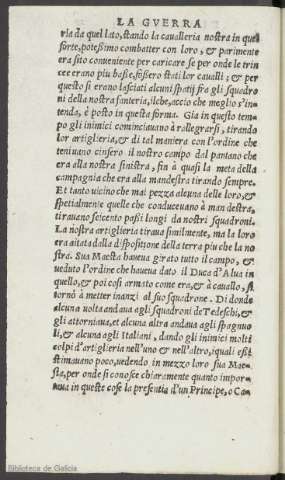 LA GVERRA
ria da quel lato, stando la caualleria nostra in quel
forte, potessimo combatter con loro, & parimente
era sito conueniente per caricare se per onde le trin
cee erano piu basse, fossero stati lor caualli; & per
questo si erano lasciati alcuni spatij fra gli squadro
ni della nostra fanteria, ilche, accio che meglio s'in-
tenda, è posto in questa forma. Gia in questo tem-
po gli inimici cominciauano à rallegrarsi, tirando
lor artiglieria, & di tal maniera con l'ordine che
teniuano cinsero il nostro campo dal pantano che
era alla nostra sinistra, fin à quasi la meta della
campagnia che era alla mandestra tirando sempre.
Et tanto uicino che mai pezza alcuna delle loro, &
spetialmente quelle che conduceuano à man destra,
tirauano seicento passi longi da nostri squadroni.
La nostra artiglieria tiraua similmente, ma la loro
era aitata dalla dispositione della terra piu che la no
stra. Sua Maesta haueua girato tutto il campo, &
ueduto l'ordine che haueua dato il Duca d'Alua in
quello, & poi cosi armato come era, & à cauallo, si
tornò à metter inanzi al suo squadrone. Di donde
alcuna uolta andaua agli squadroni de Tedeschi, &
gli attorniaua, et alcuna altra andaua agli spagnuo
li, & alcuna agli Italiani, dando gli inimici molti
colpi d'artiglieria nell'uno & nell'altro, iquali essi
stimauano poco, uedendo in mezzo loro sua Mae-
sta, per onde si conosce chiaramente quanto impor-
taua in queste cose la presentia d'un Principe, o Ca-
Biblioteca de Galicia